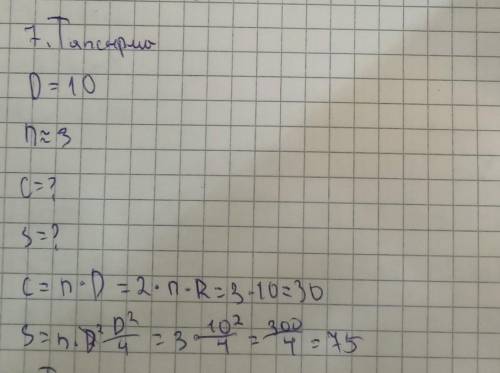 7. Тапсырма
D = 10
П ≈ 3
C = ?
S = ?
C = П · D = 2 · П · R = 3 · 10 = 30
S = П · D²/4 = 3 · 10²/4 = 300/4 = 75